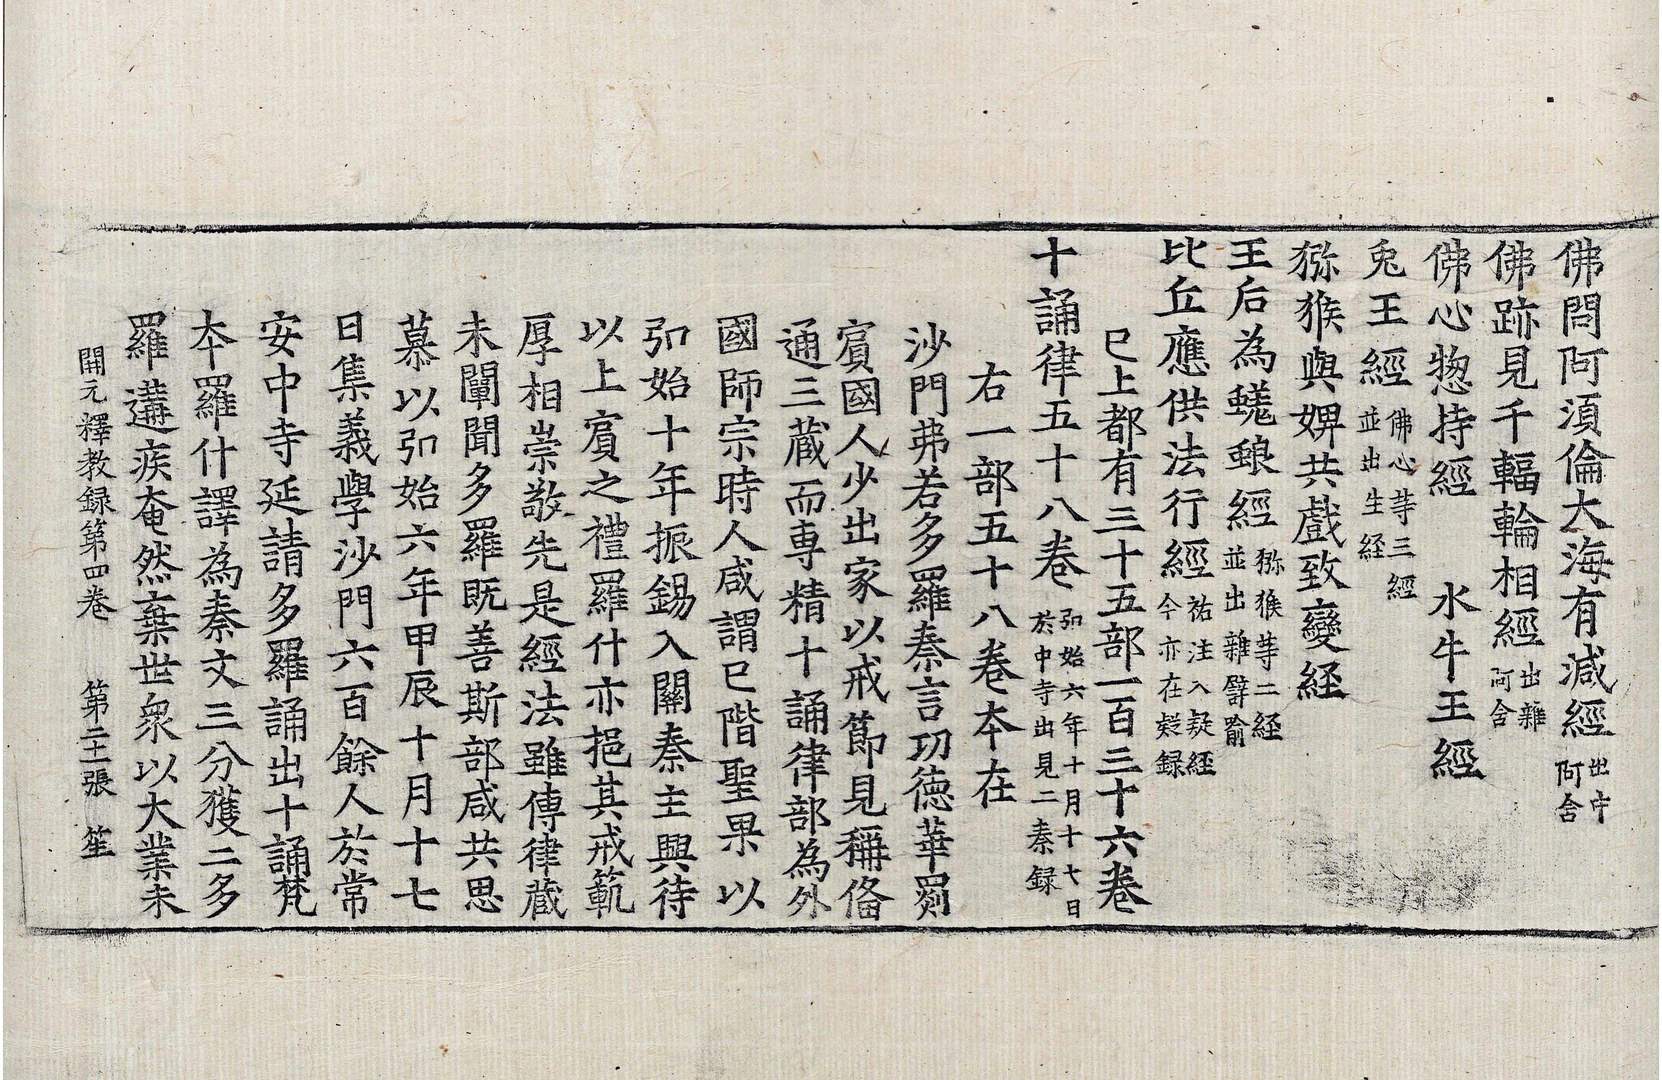 佛問阿須倫大海有減經出中阿含
佛跡見千輻輪相經出雜阿含
佛心惣持經 水牛王經
兎王經佛心䓁三經並出生経
猕猴與婢共戲致變経
王后為蜣蜋經猕猴䓁二経並出雜譬喻
比丘應供法行經祐注入疑經今亦在疑録
巳上都有三十五部一百三十六巻
十誦律五十八巻弘始六年十月十七日於中寺出見二秦録
右一部五十八巻夲在
沙門弗若多羅秦言功德華罽
賔國人少出家以戒節見稱俻
通三藏而專精十誦律部為外
國師宗時人咸謂巳階聖果以
弘始十年振錫入關秦主興待
以上賔之禮羅什亦挹其戒範
厚相崇敬先是經法雖傳律藏
未闡聞多羅既善斯部咸共思
慕以弘始六年甲辰十月十七
日集義學沙門六百餘人於常
安中寺延請多羅誦出十誦梵
夲羅什譯為秦文三分獲二多
羅遘疾奄然棄世衆以大業未
開元釋教録第四巻 第二十一張 笙